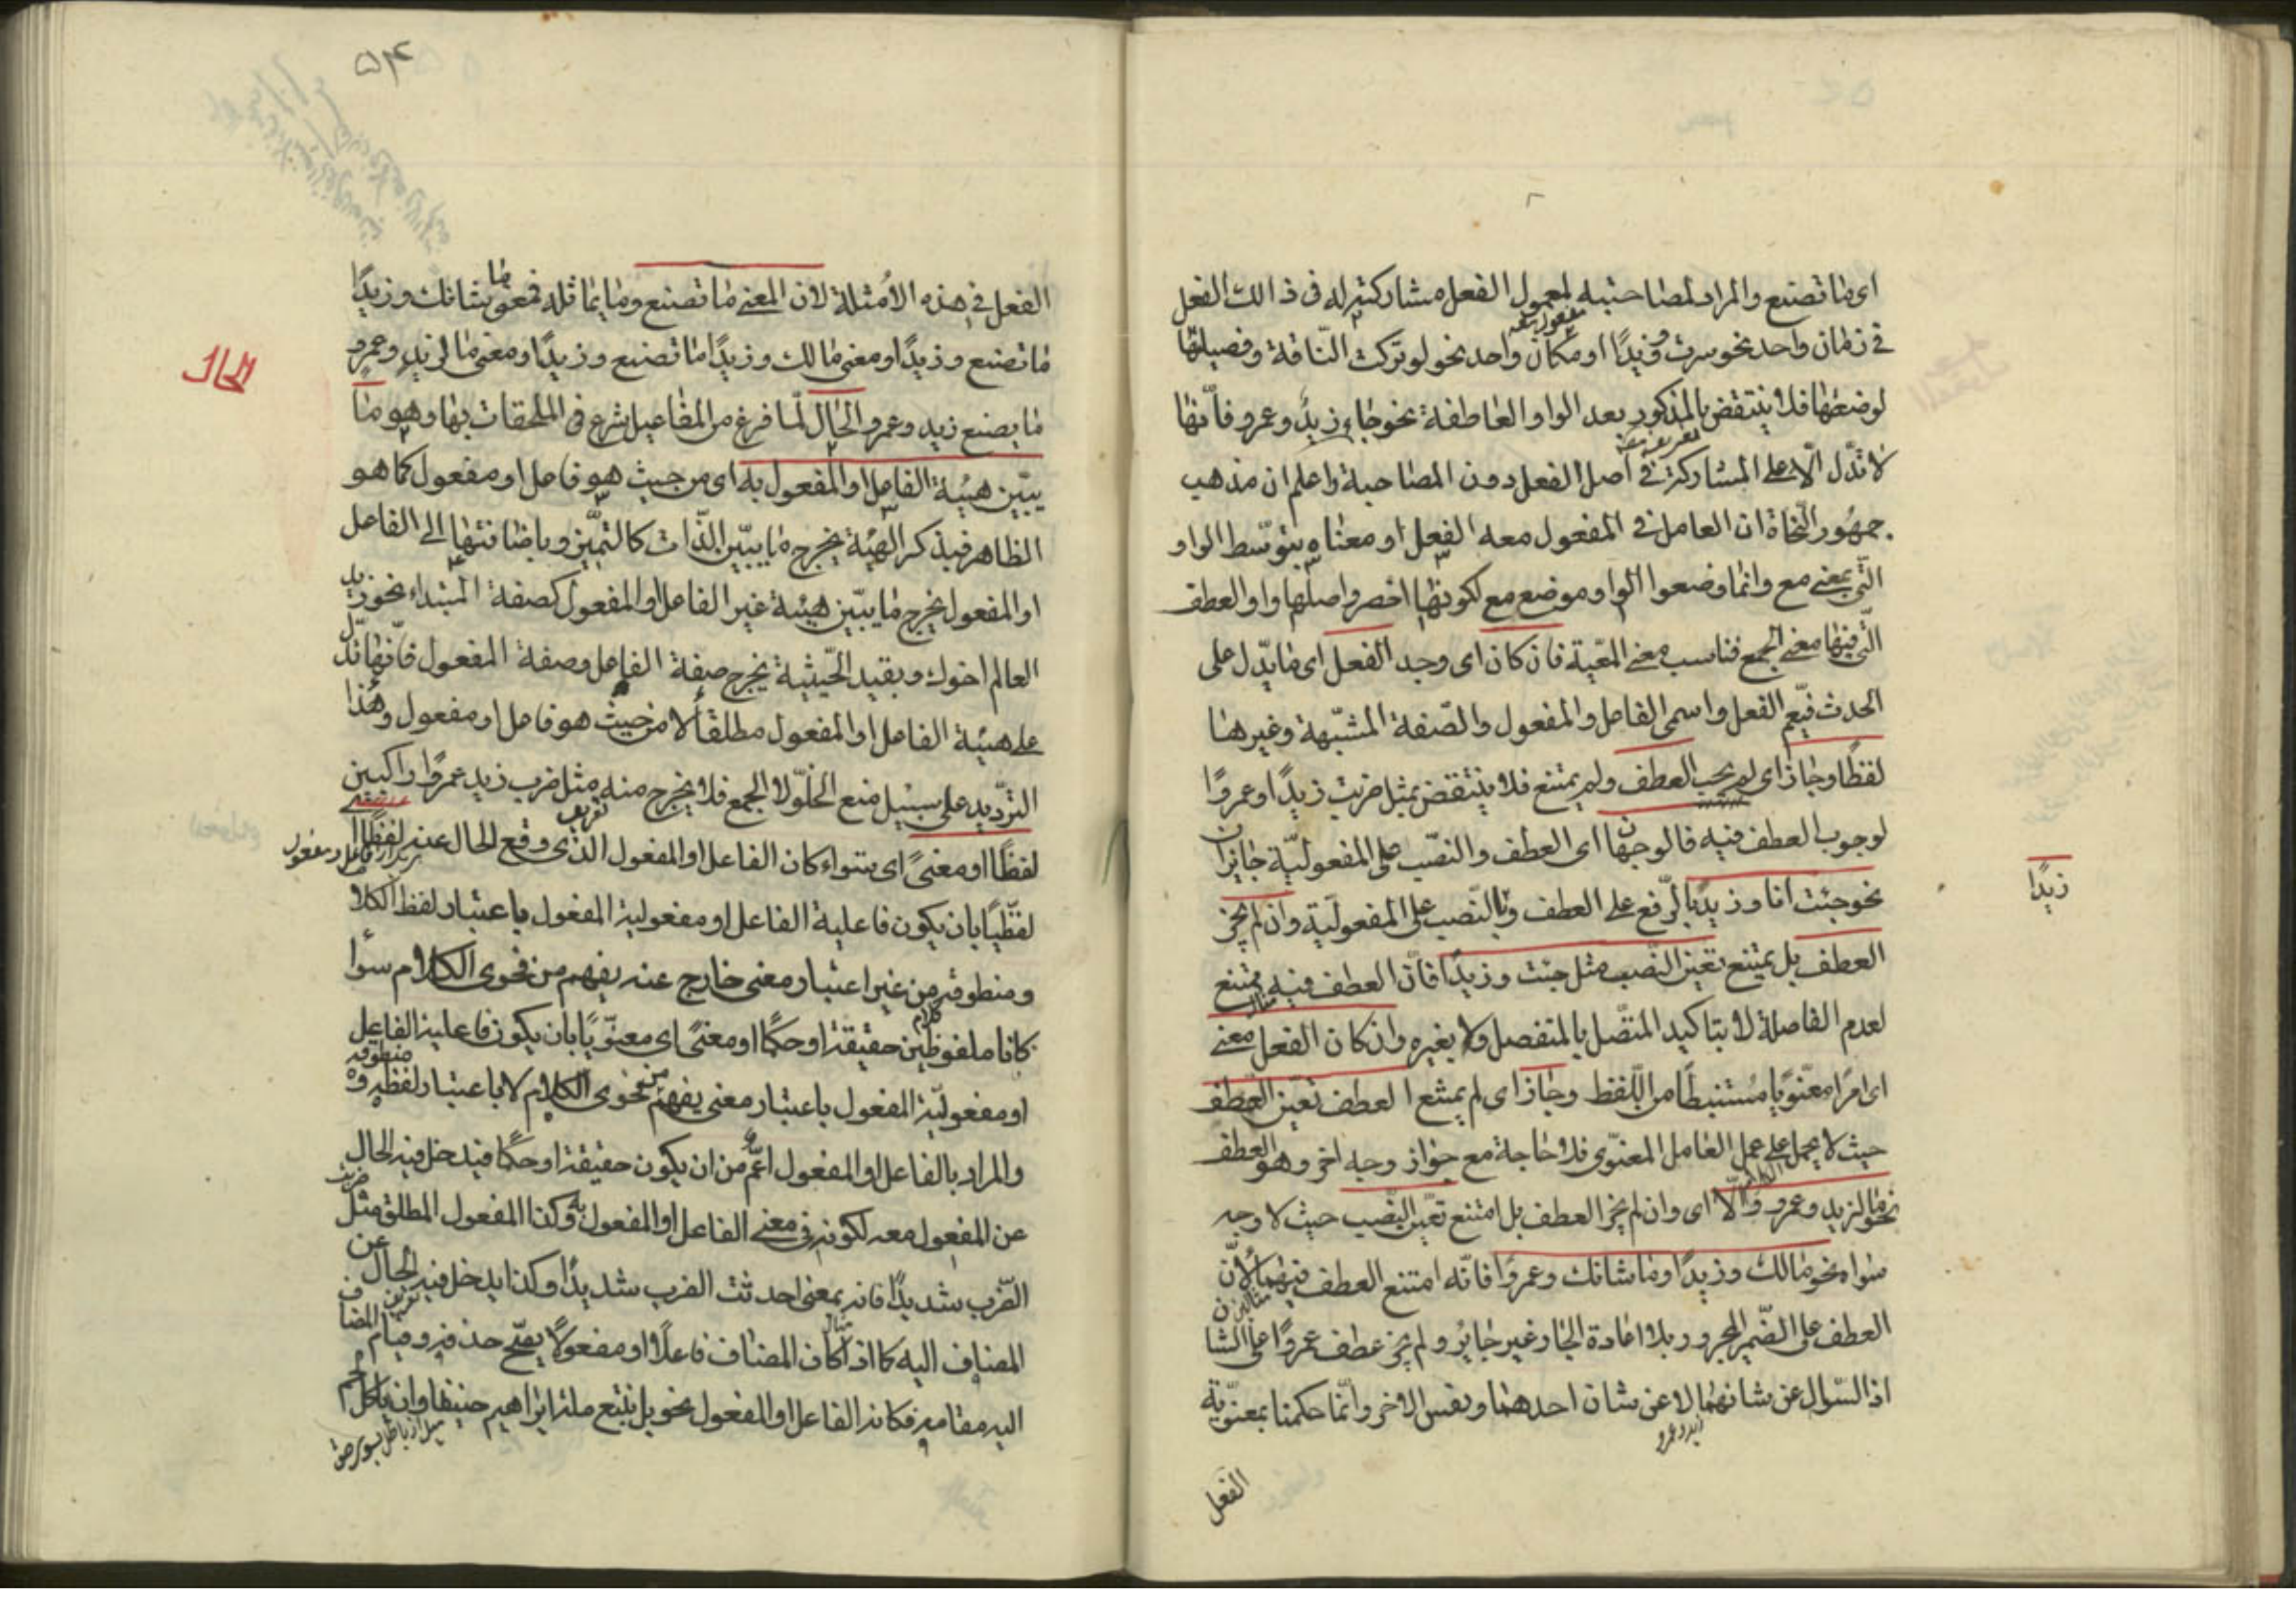 اى ما تصنع والمراد لمصاحبته لمعمول الفعل مشاركته له فى ذالك الفعل
فى زمان واحد نحو سرت وزيدًا او مكان واحد نحو لو تركت النّاقة وفصيلها
لوضعها فلا ينتقض بالمذكور بعد الواو العاطفة نحو جاء زيدٌ وعمرو فانّها
لا تدّل الّا على المشاركة فى اصل الفعل دون المصاحبة واعلم ان مذهب
جمهور النّحاة ان العامل فى المفعول معه الفعل او معناه بتوسّط الواو
الّتى بمعنى مع وانّما وضعوا الواو موضع مع لكونها اخصر واصلها واو العطف
الّتى فيها معنى الجمع فناسب معنى المعّية فان كان اى وجد الفعل اى ما يدّل على
الحدث فيعّم الفعل واسمى الفاعل والمفعول والصّفة المشبّهة وغيرها
لفظًا وجاز اى لم يجب العطف ولم يمتنع فلا ينتقض بمثل ضربت زيدًا وعمروًا
لوجوب العطف فيه فالوجهان اى العطف والنصّب على المفعوليّة جايزان
نحو جئت انا وزيدًا بالرّفع على العطف وبالنّصب على المفعوليّة وان لم يجز
العطف بل يمتنع تعيّن النّصب مثل جئت وزيدًا فانّ العطف فيه ممتنع
لعدم الفاصلة لا بتاكيد المتّصل بالمنفصل ولا بغيره وان كان الفعل معنى
اى امرًا معنّويًا مستنبطًا من اللّفظ وجاز اى لم يمتنع العطف تعيّن العطف
حيث لا يحمل على عمل العامل المعنوّى فلا حاجة مع جواز وجه اخر وهو العطف
نحو ما لزيد وعمرو والّا اى وان لم يجز العطف بل امتنع تعيّن النّصب حيث لا وجه
سواه نحو مالك وزيدًا وما شانك وعمروًا فانّه امتنع العطف فيهما لانّ
العطف على الضّمير المجرور بلا اعادة الجار غير جايز ولم يجز عطف عمروًا على الشان
اذ السّوال عن شانهما لا عن شان احدهما ونفس الاخر وانّما حكمنا بمعنوّية
زيد وعمرو
الفعل
زيدًا
۵۴
الفعل فى هذه الأمثلة لان المعنى ما تصنع وما يماثله فمعنى ما شانك وزيدًا
ما تصنع وزيدًا ومعنى مالك وزيدًا ما تصنع وزيدًا ومعنى ما لزيد وعمرو
ما يصنع زيد وعمرو الحال لمّا فرغ من المفاعيل شرع فى الملحقات بها وهو ما
يبّين هيئة الفاعل او المفعول به اى من حيث هو فاعل او مفعول كما هو
الظاهر فبذكر الهيئة يخرج ما يبيّن الذّات كالتميّيز وباضافتها الى الفاعل
او المفعول يخرج ما يبّين هيئة غير الفاعل او المفعول كصفة المبتداء نحو زيد
العالم اخوك وبقيد الحّيثية يخرج صفة الفاعل وصفة المفعول فانّها تدّل
على هيئة الفاعل او المفعول مطلقًا لا من حيث هو فاعل او مفعول وهذا
التردّيد على سبيل منع الخلّو لا الجمع فلا يخرج منه مثل ضرب زيد عمروًا راكبين
لفظًا او معنىً اى سواء كان الفاعل او المفعول الذى وقع الحال عنه لفظًا
لفظّيًا بان يكون فاعلية الفاعل او مفعولية المفعول باعتبار لفظ الكلا
ومنطوقه من غير اعتبار معنى خارج عنه يفهم من فحوى الكلام سوأ
كانا ملفوظين حقيقة او حكمًا او معنىً اى معنوّيًا بان يكون فاعلية الفاعل
او مفعوليّة المفعول باعتبار معنى يفهم من فحوى الكلام لا باعتبار لفظه و منطوقه
والمراد بالفاعل او المفعول اعّم من ان يكون حقيقة او حكمًا فيدخل فيه الحال
عن المفعول معه لكونه فى معنى الفاعل او المفعول به وكذا المفعول المطلق مثل ضربت
الضّرب شديدًا فانه بمعنى احدثت الضرب شديدًا وكذا يدخل فيه الحال عن
المضاف اليه كما اذا كان المضاف فاعلًا او مفعولًا يصّح حذفه وقيام المضاف
اليه مقامه فكانه الفاعل او المفعول نحو بل نتبع ملة ابراهيم حنيفا وان ياكل لحم
الحال